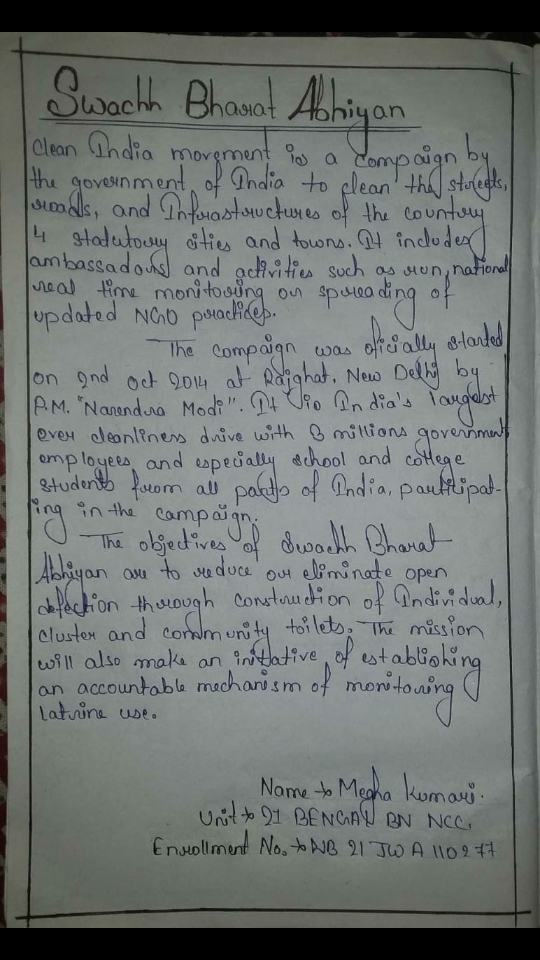 Swachh Bharat Abhiyan
Clean India movement is a campaign by
the government of India to clean the streets,
roads, and Infrastructures of the country
4 statutory cities and towns. It includes
ambassadors and activities such as run, national
real time monitoring or spreading of
updated NGO practices.
The campaign was oficially started
on 2nd oct 2014 at Rajghat, New Delhi by
P.M. "Narendra Modi". It is India's largest
ever cleanliness drive with 3 millions government
employees and especially school and college
students from all parts of India, participat-
ing in the campaign.
The objectives of Swachh Bharat
Abhiyan are to reduce or eliminate open
defection through construction of Individual,
cluster and community toilets. The mission
will also make an initiative of establishing
an accountable mechanism of monitoring
latrine use.
Name → Megha Kumari.
Unit → 21 BENGAL BN NCC.
Enrollment No. → WB 21 JWA 110277